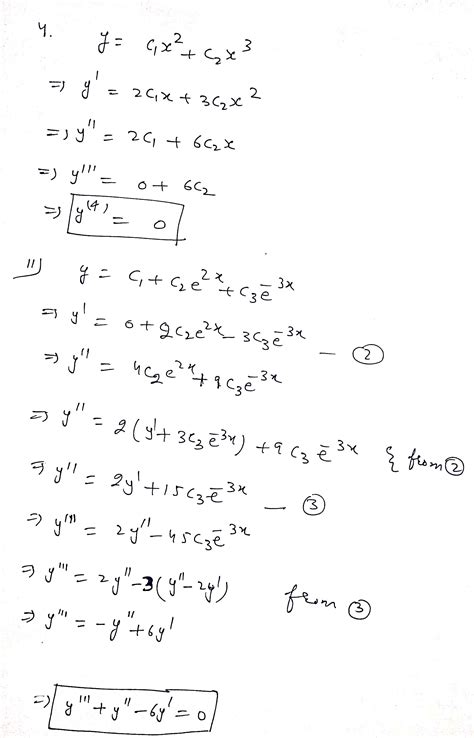 4. y = c₁x² + c₂x³
⇒ y' = 2c₁x + 3c₂x²
⇒ y'' = 2c₁ + 6c₂x
⇒ y''' = 0 + 6c₂
⇒ y⁽⁴⁾ = 0
11) y = c₁ + c₂e²ˣ + c₃e⁻³ˣ
⇒ y' = 0 + 2c₂e²ˣ - 3c₃e⁻³ˣ — ②
⇒ y'' = 4c₂e²ˣ + 9c₃e⁻³ˣ
⇒ y'' = 2(y' + 3c₃e⁻³ˣ) + 9c₃e⁻³ˣ { from ②
⇒ y'' = 2y' + 15c₃e⁻³ˣ — ③
⇒ y''' = 2y'' - 45c₃e⁻³ˣ
⇒ y''' = 2y'' - 3(y'' - 2y') from ③
⇒ y''' = -y'' + 6y'
⇒ y''' + y'' - 6y' = 0